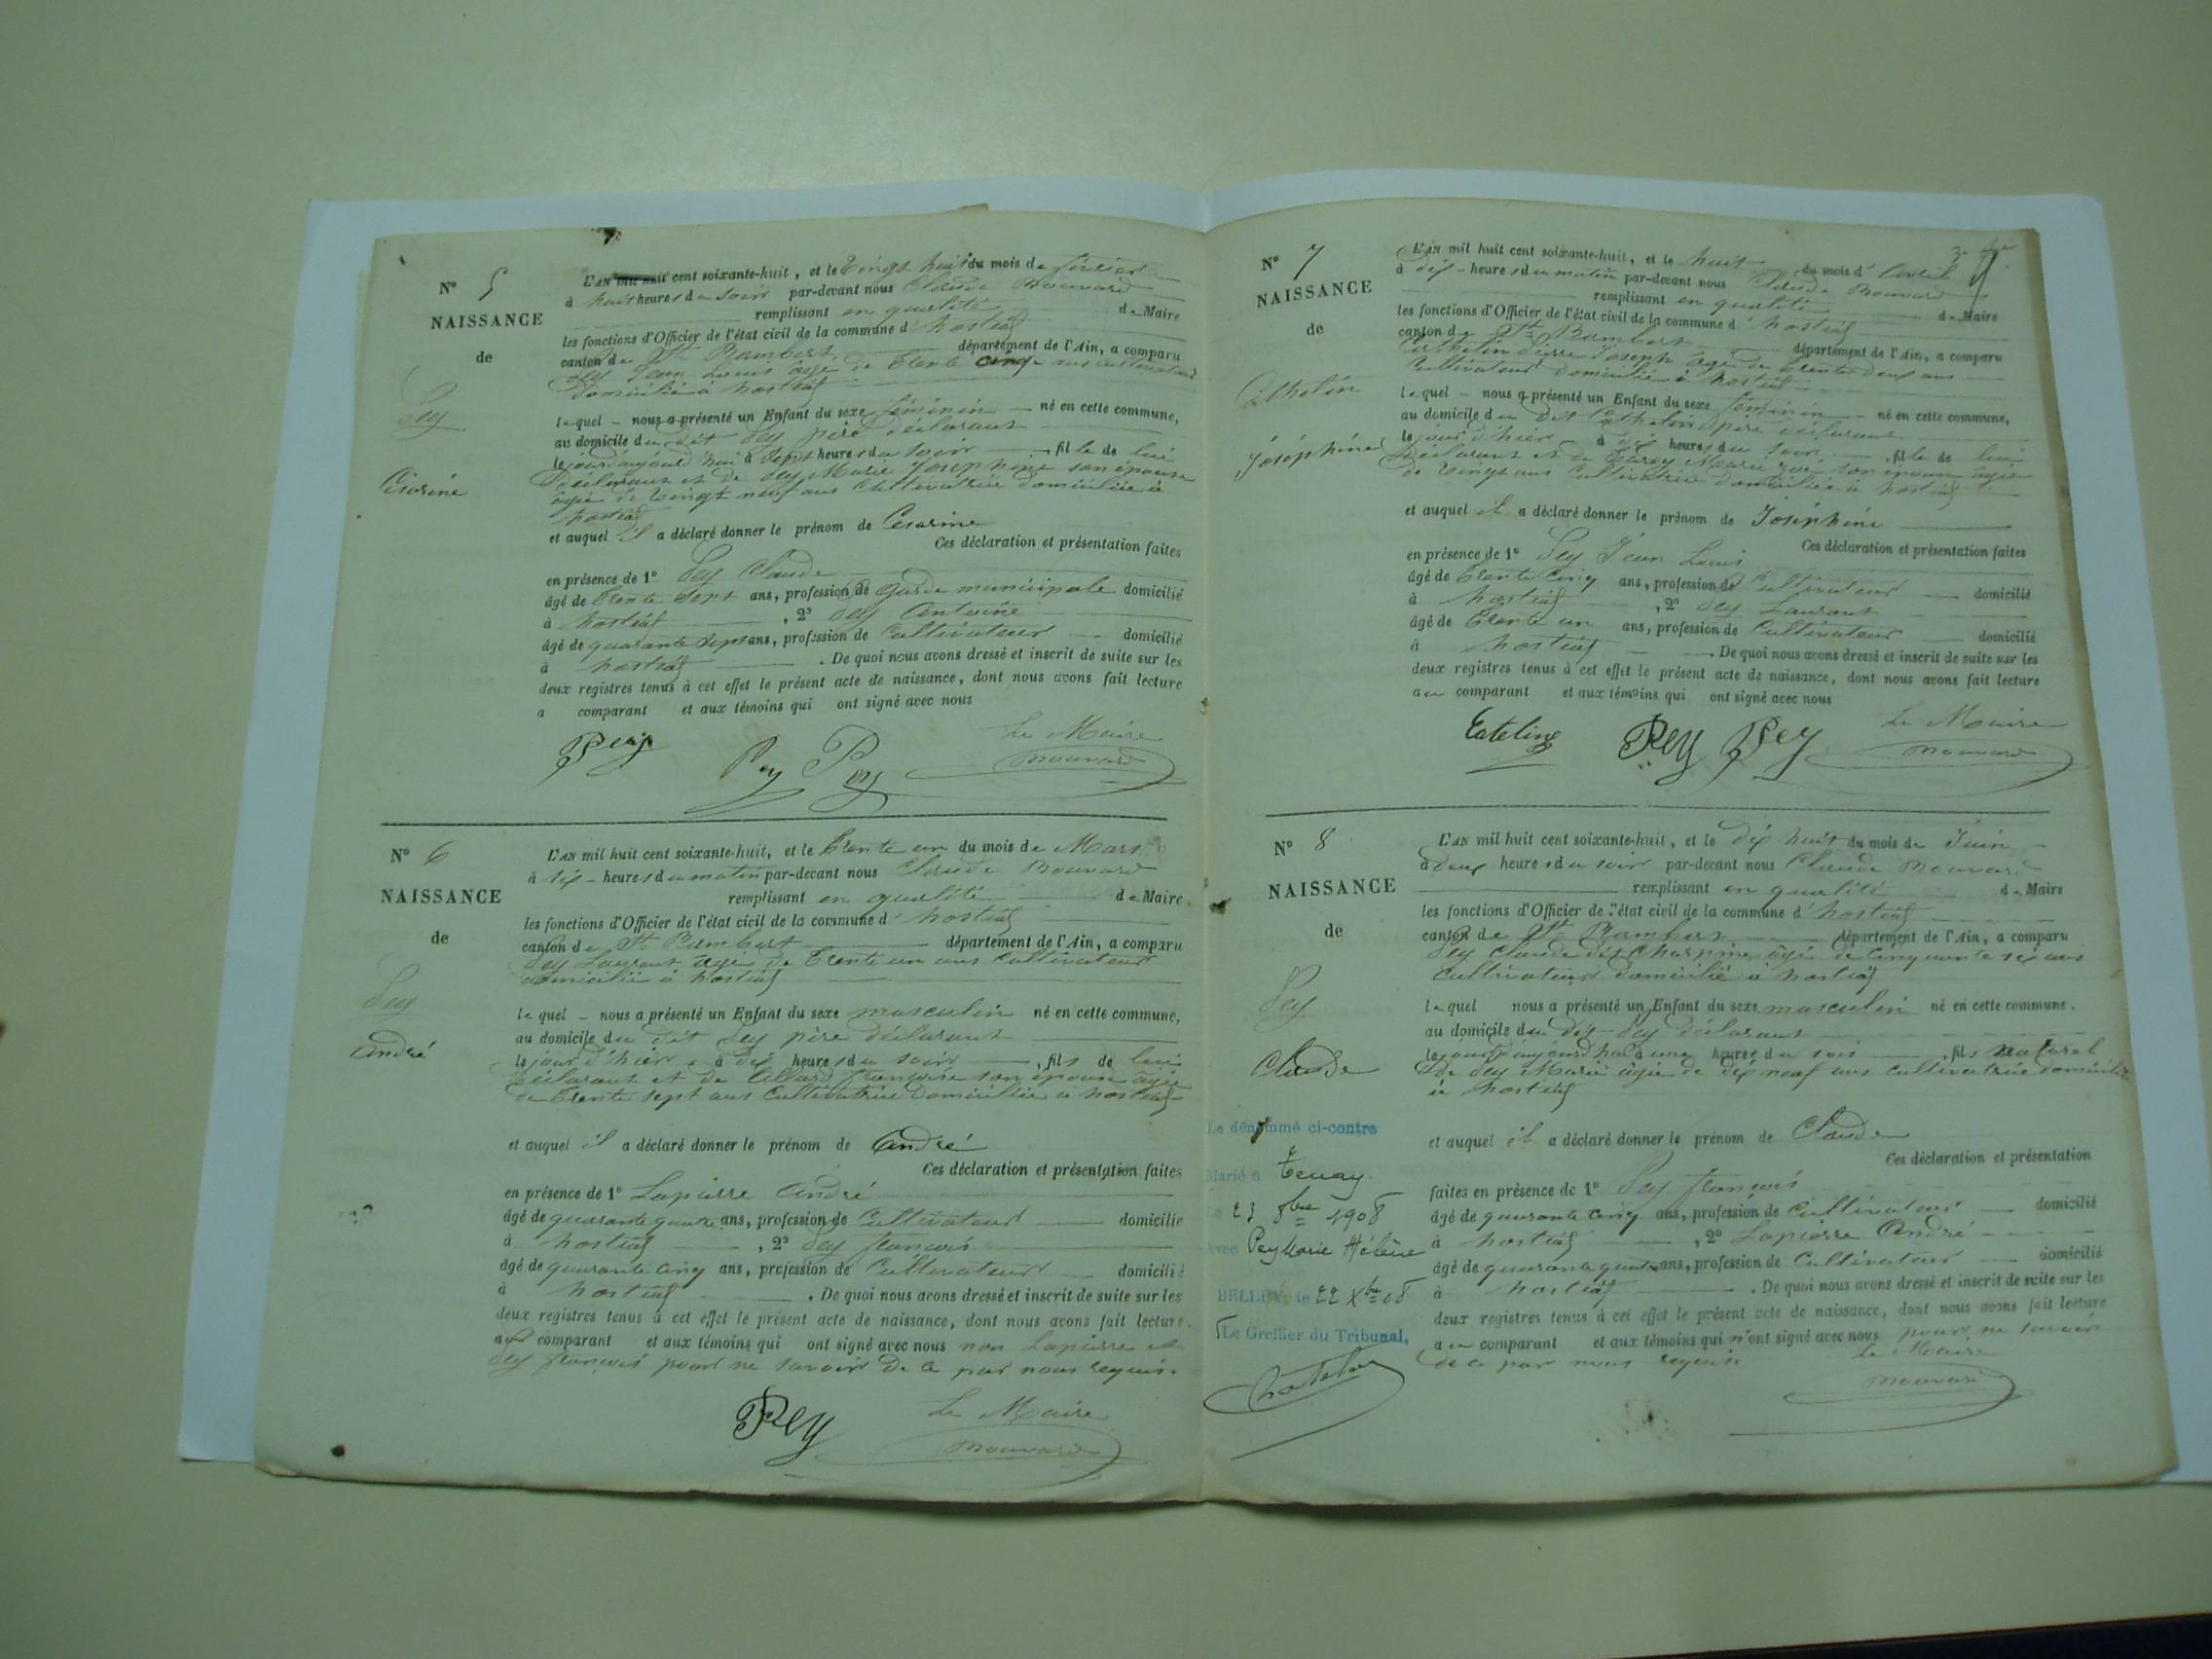 N° 5
NAISSANCE
de
Pey
Césarine
L'AN mil huit cent soixante-huit, et le Vingt huit du mois de février
à huit heures du soir par-devant nous Claude Mouvard
remplissant en qualité de Maire
les fonctions d'Officier de l'état civil de la commune d'hostiaz
canton de St Rambert département de l'Ain, a comparu
Pey Jean Louis âgé de trente cinq ans cultivateur
domicilié à hostiaz
lequel nous a présenté un Enfant du sexe féminin né en cette commune,
au domicile du dit Pey père déclarant
le jourd'aujourd'hui à sept heures du soir fille de lui
déclarant et de Pey Marie Josephine son épouse
âgée de vingt neuf ans cultivatrice domiciliée à
hostiaz
et auquel il a déclaré donner le prénom de Cesarine
Ces déclaration et présentation faites
en présence de 1° Pey Claude
âgé de trente sept ans, profession de garde municipale domicilié
à hostiaz , 2° Pey Antoine
âgé de quarante sept ans, profession de Cultivateur domicilié
à hostiaz . De quoi nous avons dressé et inscrit de suite sur les
deux registres tenus à cet effet le présent acte de naissance, dont nous avons fait lecture
a comparant et aux témoins qui ont signé avec nous
Pey Pey Pey Le Maire
Mouvard
N° 6
NAISSANCE
de
Pey
André
L'AN mil huit cent soixante-huit, et le trente un du mois de Mars
à six heures du matin par-devant nous Claude Mouvard
remplissant en qualité de Maire
les fonctions d'Officier de l'état civil de la commune d'hostiaz
canton de St Rambert département de l'Ain, a comparu
Pey Laurent âgé de trente un ans cultivateur
domicilié à hostiaz
lequel nous a présenté un Enfant du sexe masculin né en cette commune,
au domicile du dit Pey père déclarant
le jour d'hier à dix heures du soir , fils de lui
déclarant et de Allard françoise son épouse âgée
de trente sept ans cultivatrice domiciliée à hostiaz
et auquel il a déclaré donner le prénom de André
Ces déclaration et présentation faites
en présence de 1° Lapierre André
âgé de quarante quatre ans, profession de Cultivateur domicilié
à hostiaz , 2° Pey françois
âgé de quarante cinq ans, profession de Cultivateur domicilié
à hostiaz . De quoi nous avons dressé et inscrit de suite sur les
deux registres tenus à cet effet le présent acte de naissance, dont nous avons fait lecture.
au comparant et aux témoins qui ont signé avec nous non Lapierre et
Pey françois pour ne savoir de ce par nous requis.
Pey Le Maire
Mouvard
N° 7
NAISSANCE
de
Cathelin
Joséphine
L'AN mil huit cent soixante-huit, et le huit du mois d'Avril
à dix heures du matin par-devant nous Claude Mouvard
remplissant en qualité de Maire
les fonctions d'Officier de l'état civil de la commune d'hostiaz
canton de St Rambert département de l'Ain, a comparu
Cathelin Pierre Joseph âgé de trente deux ans
Cultivateur domicilié à hostiaz
lequel nous a présenté un Enfant du sexe féminin né en cette commune,
au domicile du dit Cathelin père déclarant
le jour d'hier à dix heures du soir , fille de lui
déclarant et de Marie son épouse âgée
de vingt ans Cultivatrice domiciliée à hostiaz
et auquel il a déclaré donner le prénom de Joséphine
Ces déclaration et présentation faites
en présence de 1° Pey Jean Louis
âgé de trente cinq ans, profession de Cultivateur domicilié
à hostiaz , 2° Pey Laurent
âgé de trente un ans, profession de Cultivateur domicilié
à hostiaz . De quoi nous avons dressé et inscrit de suite sur les
deux registres tenus à cet effet le présent acte de naissance, dont nous avons fait lecture
au comparant et aux témoins qui ont signé avec nous
Cateline Pey Pey Le Maire
Mouvard
N° 8
NAISSANCE
de
Pey
Claude
Le dénommé ci-contre
Marié à Tenay
Le 23 8bre 1908
Avec Pey Marie Hélène
BELLEY, le 22 Xbre 08
Le Greffier du Tribunal,
L'AN mil huit cent soixante-huit, et le dix huit du mois de Juin
à deux heures du soir par-devant nous Claude Mouvard
remplissant en qualité de Maire
les fonctions d'Officier de l'état civil de la commune d'hostiaz
canton de St Rambert département de l'Ain, a comparu
Pey Claude dit âgé de cinquante six ans
cultivateur domicilié à hostiaz
lequel nous a présenté un Enfant du sexe masculin né en cette commune.
au domicile du dit Pey déclarant
le jourd'aujourd'hui à une heures du soir , fils naturel
de Pey Marie âgée de dix neuf ans cultivatrice domiciliée
à hostiaz
et auquel il a déclaré donner le prénom de Claude
Ces déclaration et présentation
faites en présence de 1° Pey françois
âgé de quarante cinq ans, profession de Cultivateur domicilié
à hostiaz , 2° Lapierre André
âgé de quarante quatre ans, profession de Cultivateur domicilié
à hostiaz . De quoi nous avons dressé et inscrit de suite sur les
deux registres tenus à cet effet le présent acte de naissance, dont nous avons fait lecture
au comparant et aux témoins qui n'ont signé avec nous pour ne savoir
de ce par nous requis le Maire
Mouvard